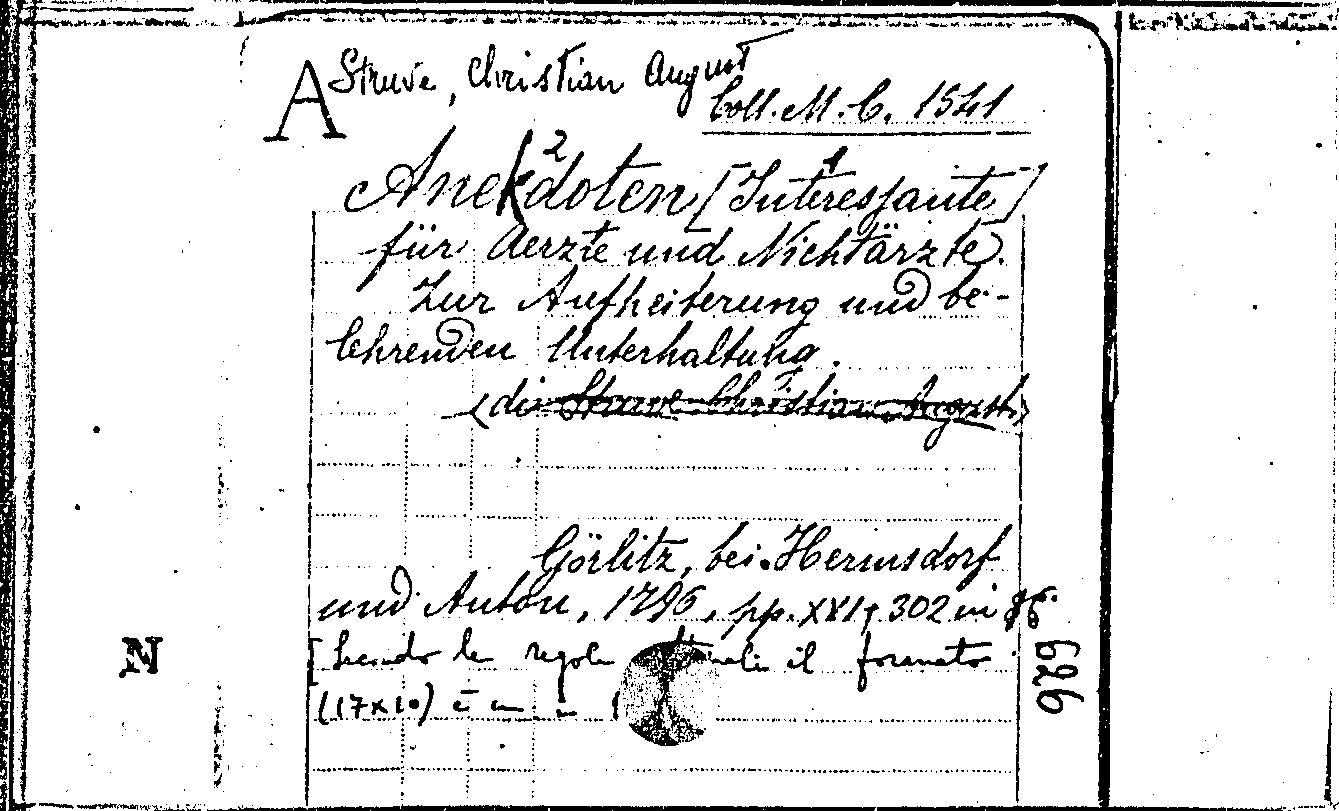 A Struve, Christian August
Coll. M. C. 1541
Anekdoten 2 [Interessante 1]
für Aerzte und Nichtärzte.
Zur Aufheiterung und be-
lehrenden Unterhaltung.
(di Struve Christian August)
Görlitz, bei Hermsdorf
und Anton, 1796, pp. XVI, 302 in 8º.
[Secondo le regole il formato
(17x10) è
N
626